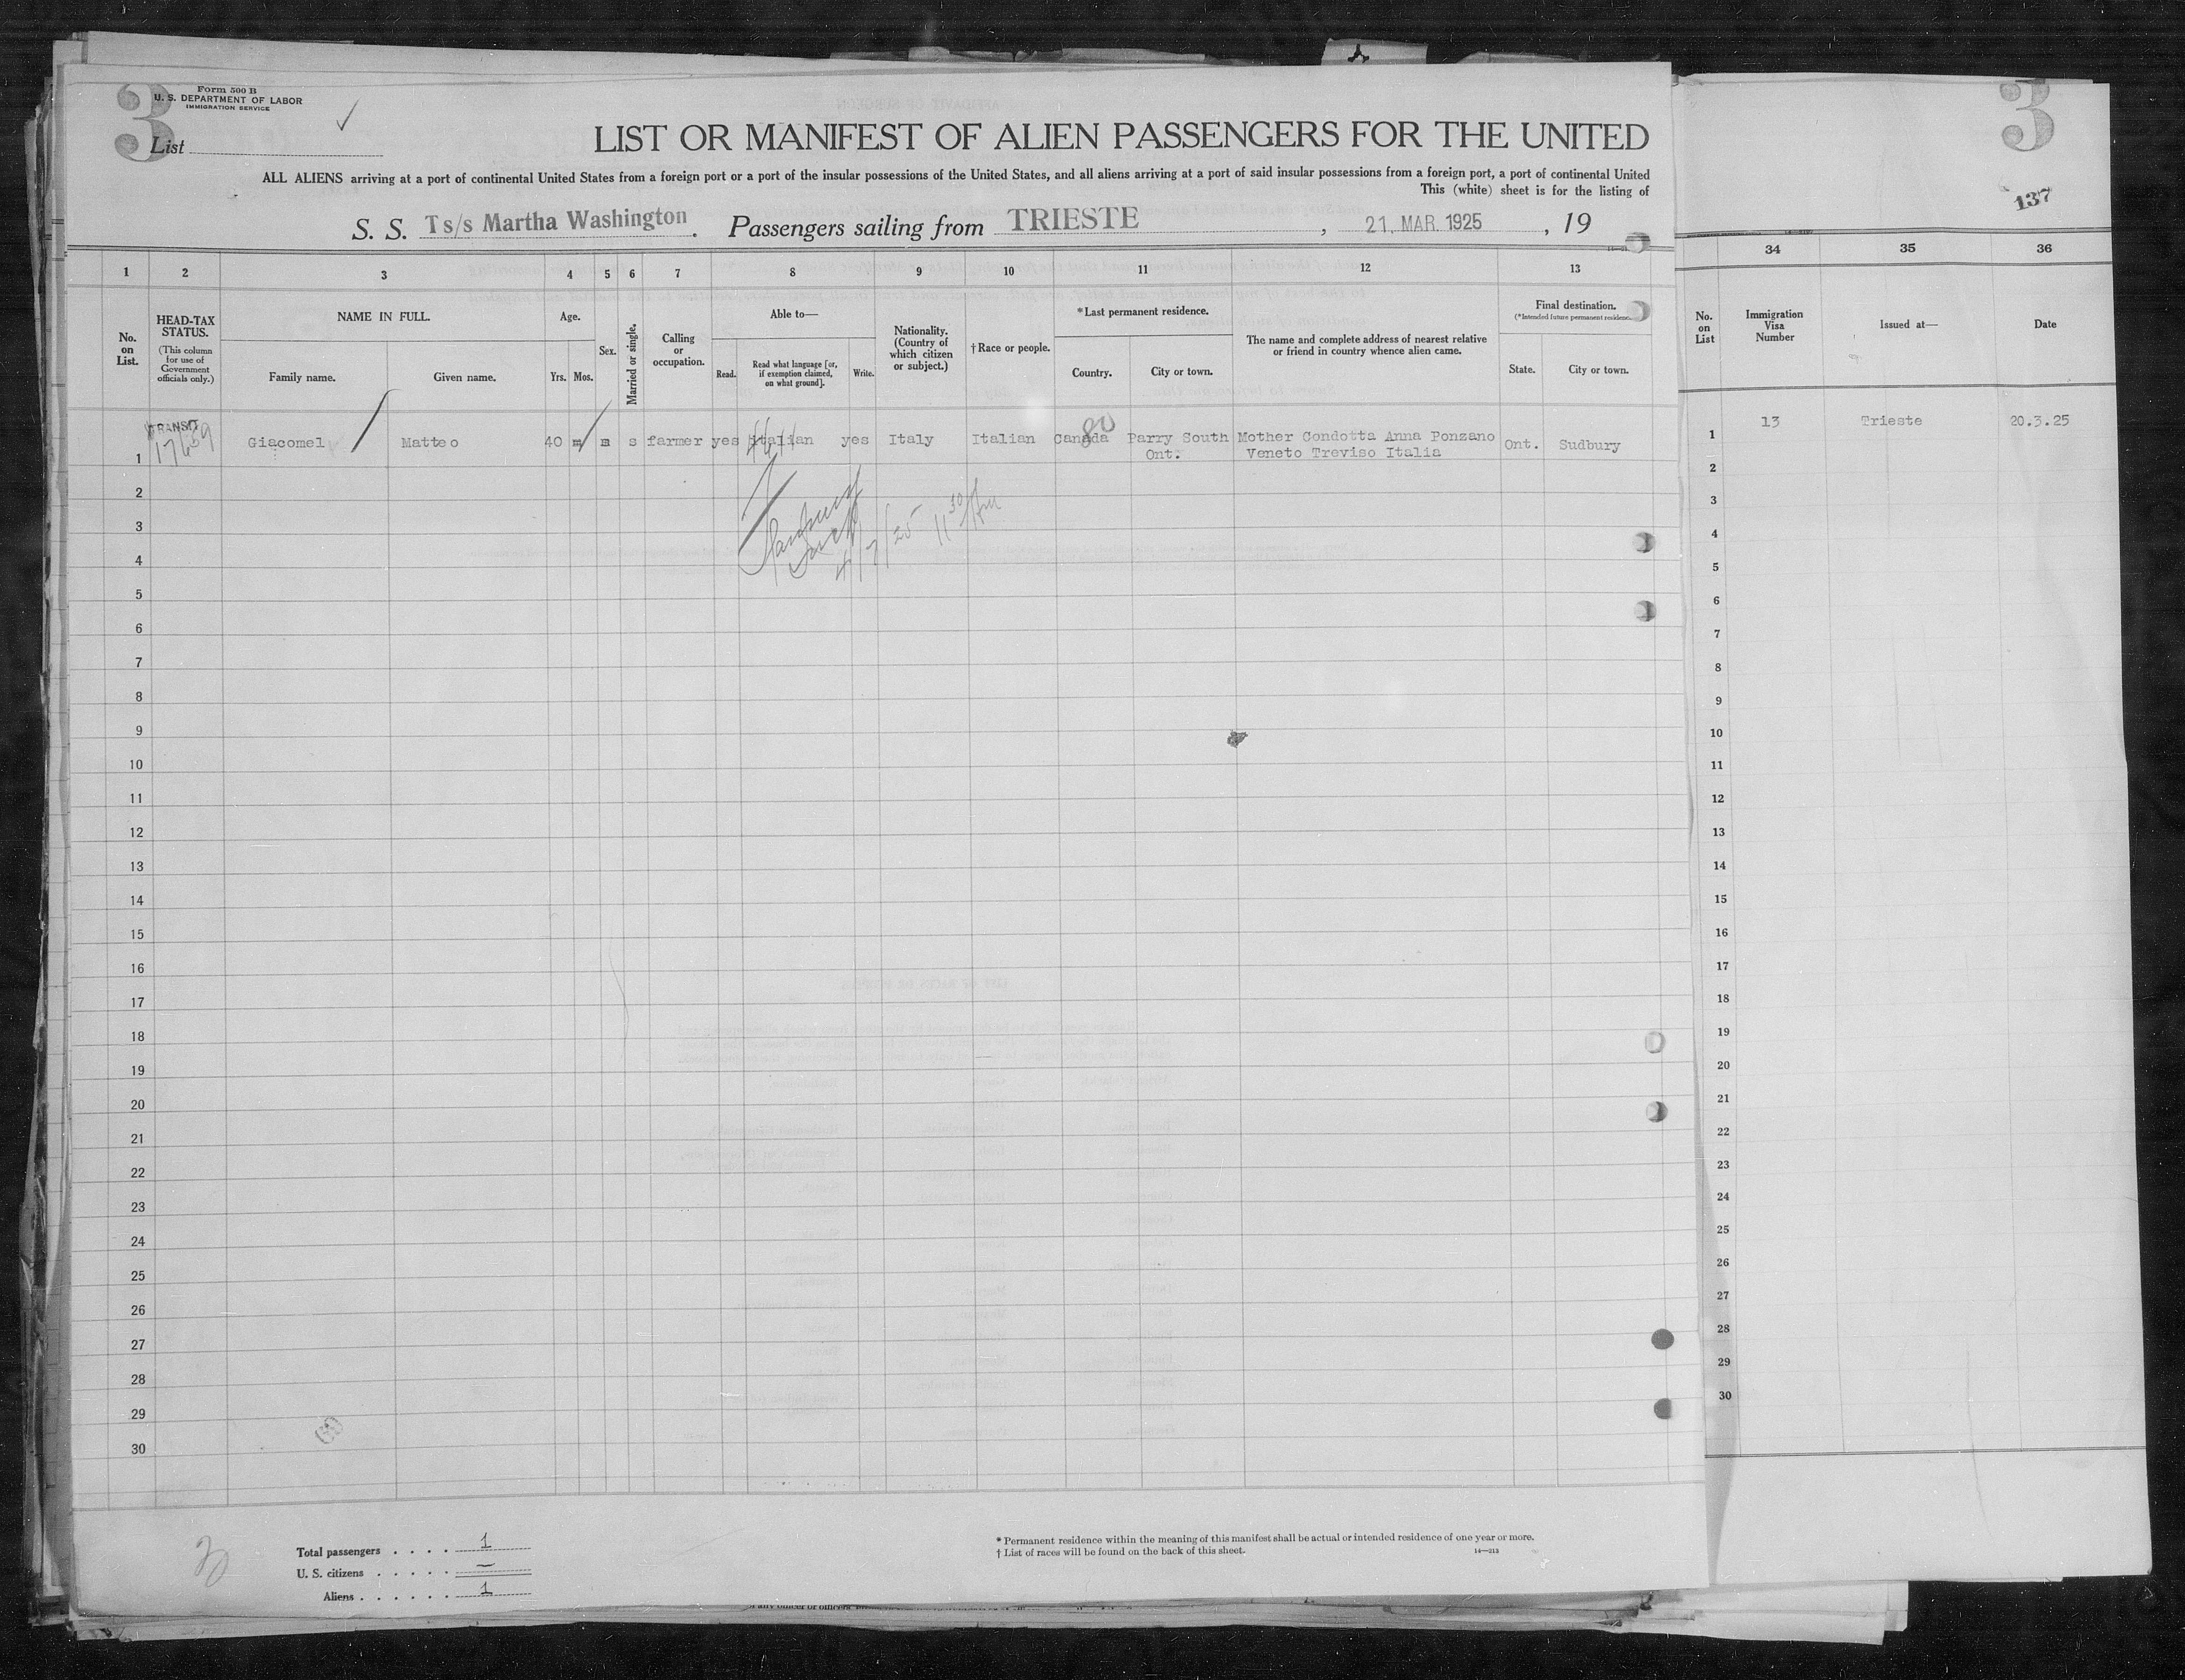 3
Form 500 B
U. S. DEPARTMENT OF LABOR
IMMIGRATION SERVICE
List
LIST OR MANIFEST OF ALIEN PASSENGERS FOR THE UNITED
ALL ALIENS arriving at a port of continental United States from a foreign port or a port of the insular possessions of the United States, and all aliens arriving at a port of said insular possessions from a foreign port, a port of continental United
This (white) sheet is for the listing of
S. S. Ts/s Martha Washington. Passengers sailing from TRIESTE, 21. MAR. 1925, 19
1 2 3 4 5 6 7 8 9 10 11 12 13
No. on List.
HEAD-TAX STATUS.
(This column for use of Government officials only.)
NAME IN FULL.
Family name.
Given name.
Age.
Yrs. Mos.
Sex.
Married or single.
Calling or occupation.
Able to—
Read.
Read what language [or, if exemption claimed, on what ground].
Write.
Nationality. (Country of which citizen or subject.)
†Race or people.
*Last permanent residence.
Country.
City or town.
The name and complete address of nearest relative or friend in country whence alien came.
Final destination.
(*Intended future permanent residence.)
State.
City or town.
TRANSIT
1 Giacomel Matteo 40 m s farmer yes Italian yes Italy Italian Canada Parry South Mother Condotta Anna Ponzano Ont. Sudbury
Ont. Veneto Treviso Italia
80
4/7/25 11 30 AM
2
3
4
5
6
7
8
9
10
11
12
13
14
15
16
17
18
19
20
21
22
23
24
25
26
27
28
29
30
Total passengers . . . . 1
U. S. citizens . . . . . —
Aliens . . . . . . 1
* Permanent residence within the meaning of this manifest shall be actual or intended residence of one year or more.
† List of races will be found on the back of this sheet.
14—213
3
137
34 35 36
No. on List
Immigration Visa Number
Issued at—
Date
1 13 Trieste 20.3.25
2
3
4
5
6
7
8
9
10
11
12
13
14
15
16
17
18
19
20
21
22
23
24
25
26
27
28
29
30